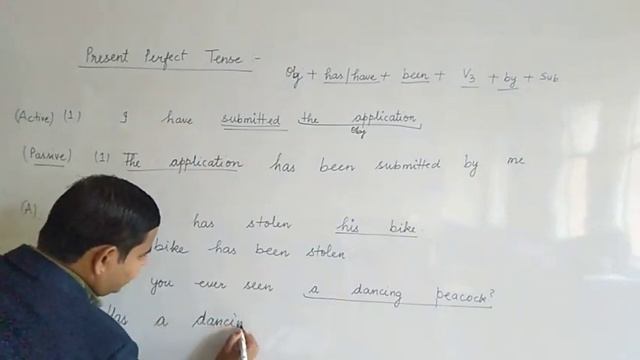 Present Perfect Tense :-
Obj + has/have + been + V3 + by + Sub
(Active) (1) I have submitted the application
Obj
(Passive) (1) The application has been submitted by me
(A) has stolen his bike.
bike has been stolen
you ever seen a dancing peacock?
Has a dancin